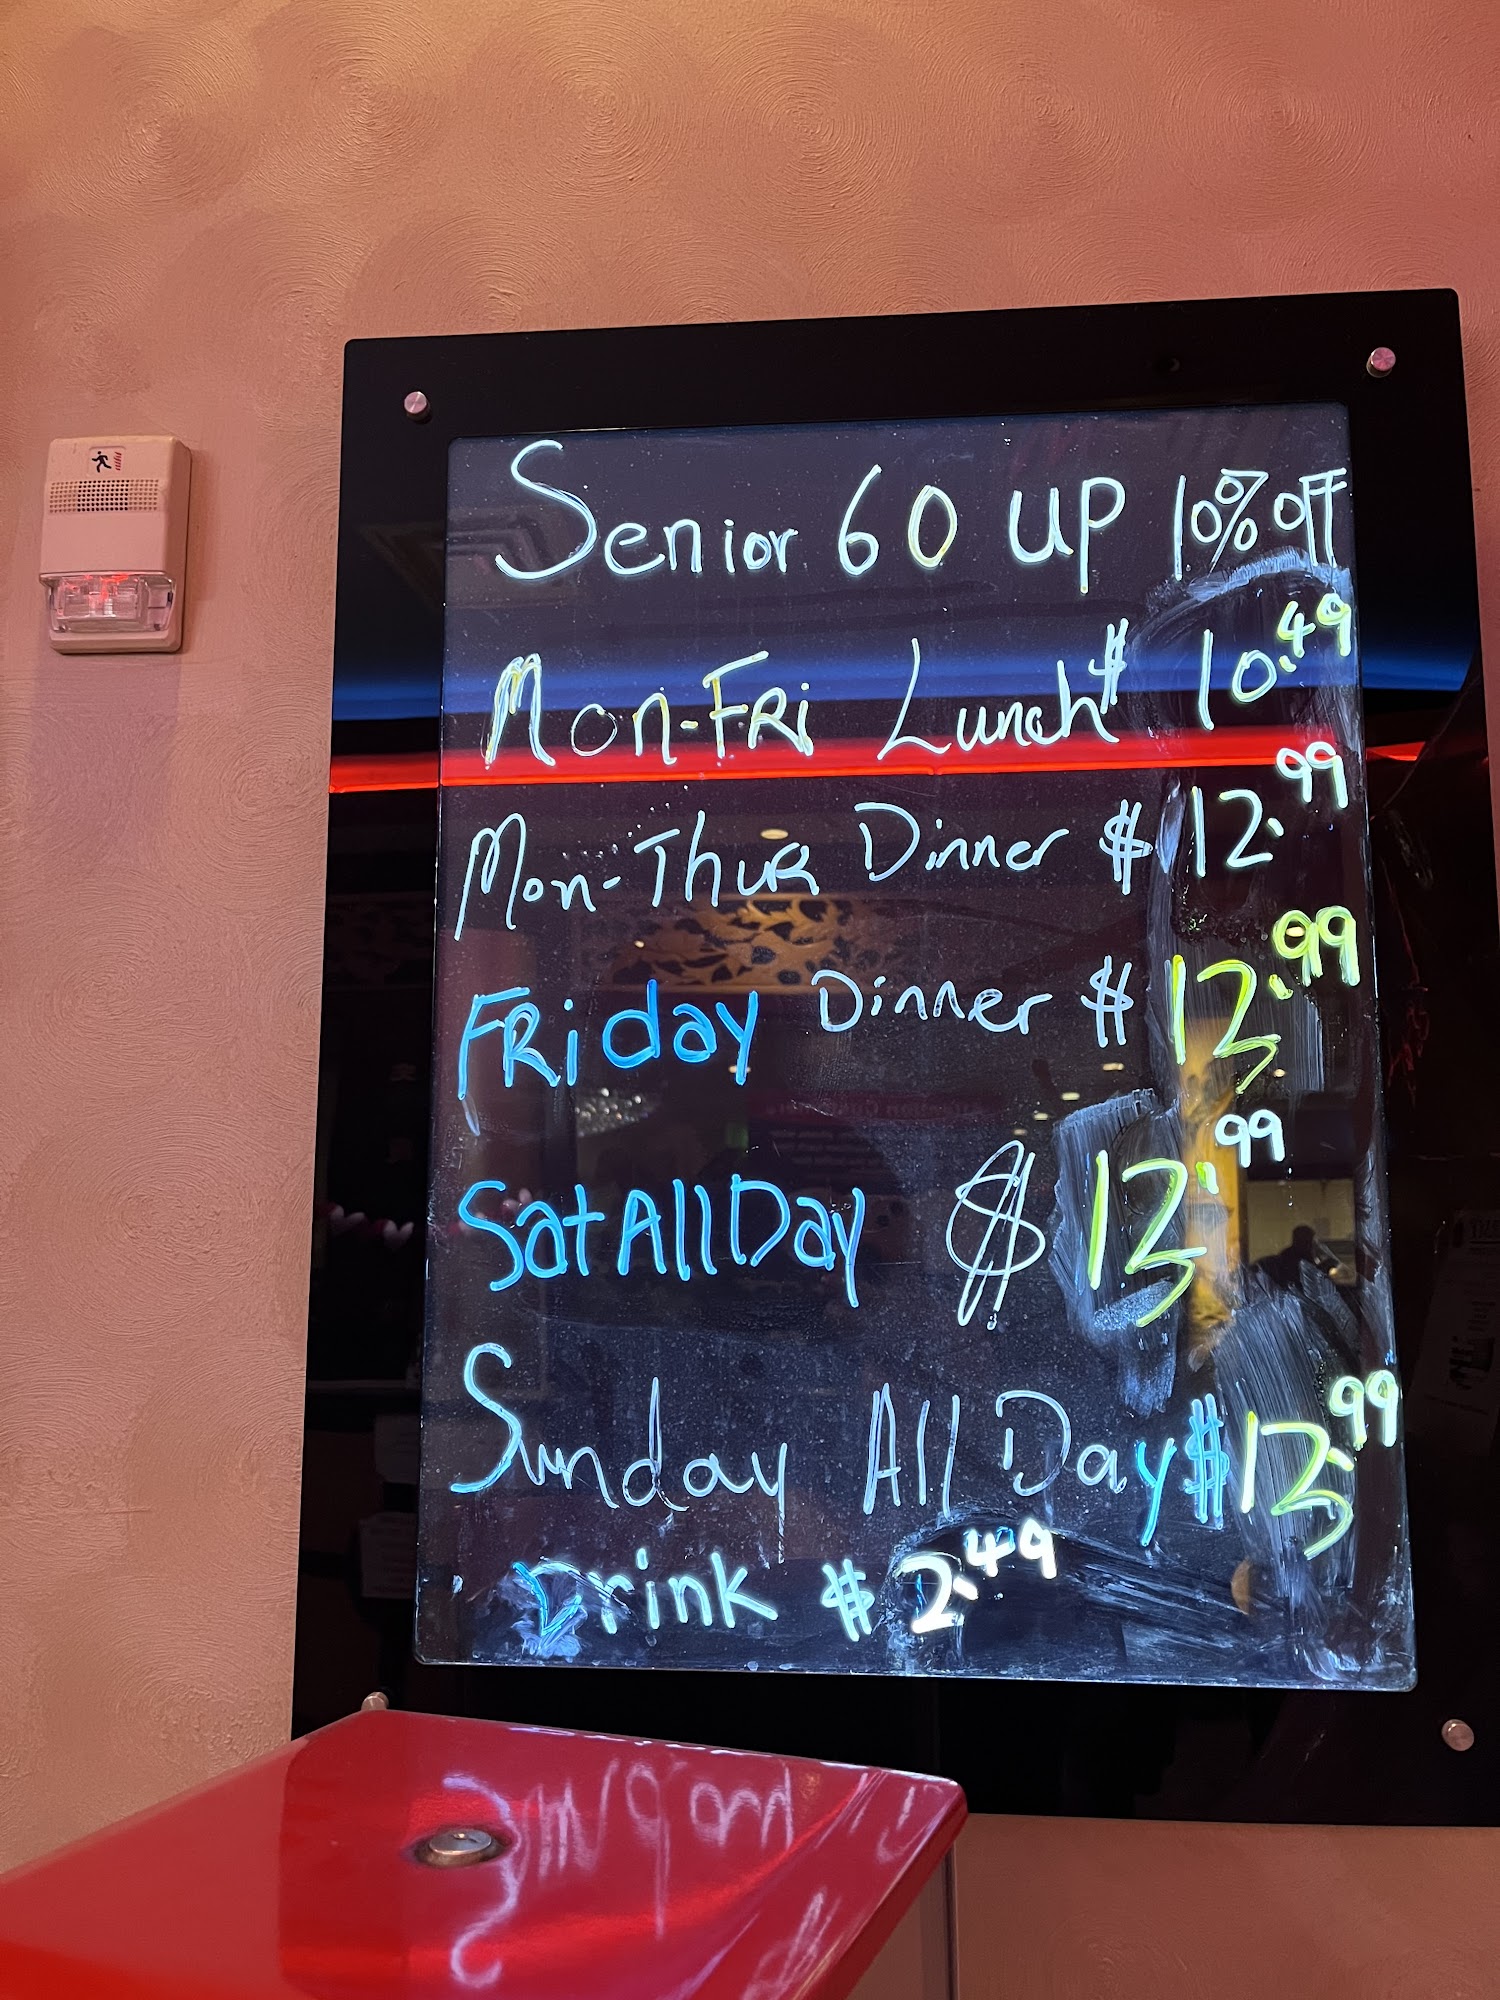 Senior 60 UP 10% OFF
Mon-FRi Lunch $ 10.49
Mon-ThuR Dinner $ 12.99
FRiday Dinner $ 13.99
Sat All Day $ 13.99
Sunday All Day $ 13.99
Drink $ 2.49